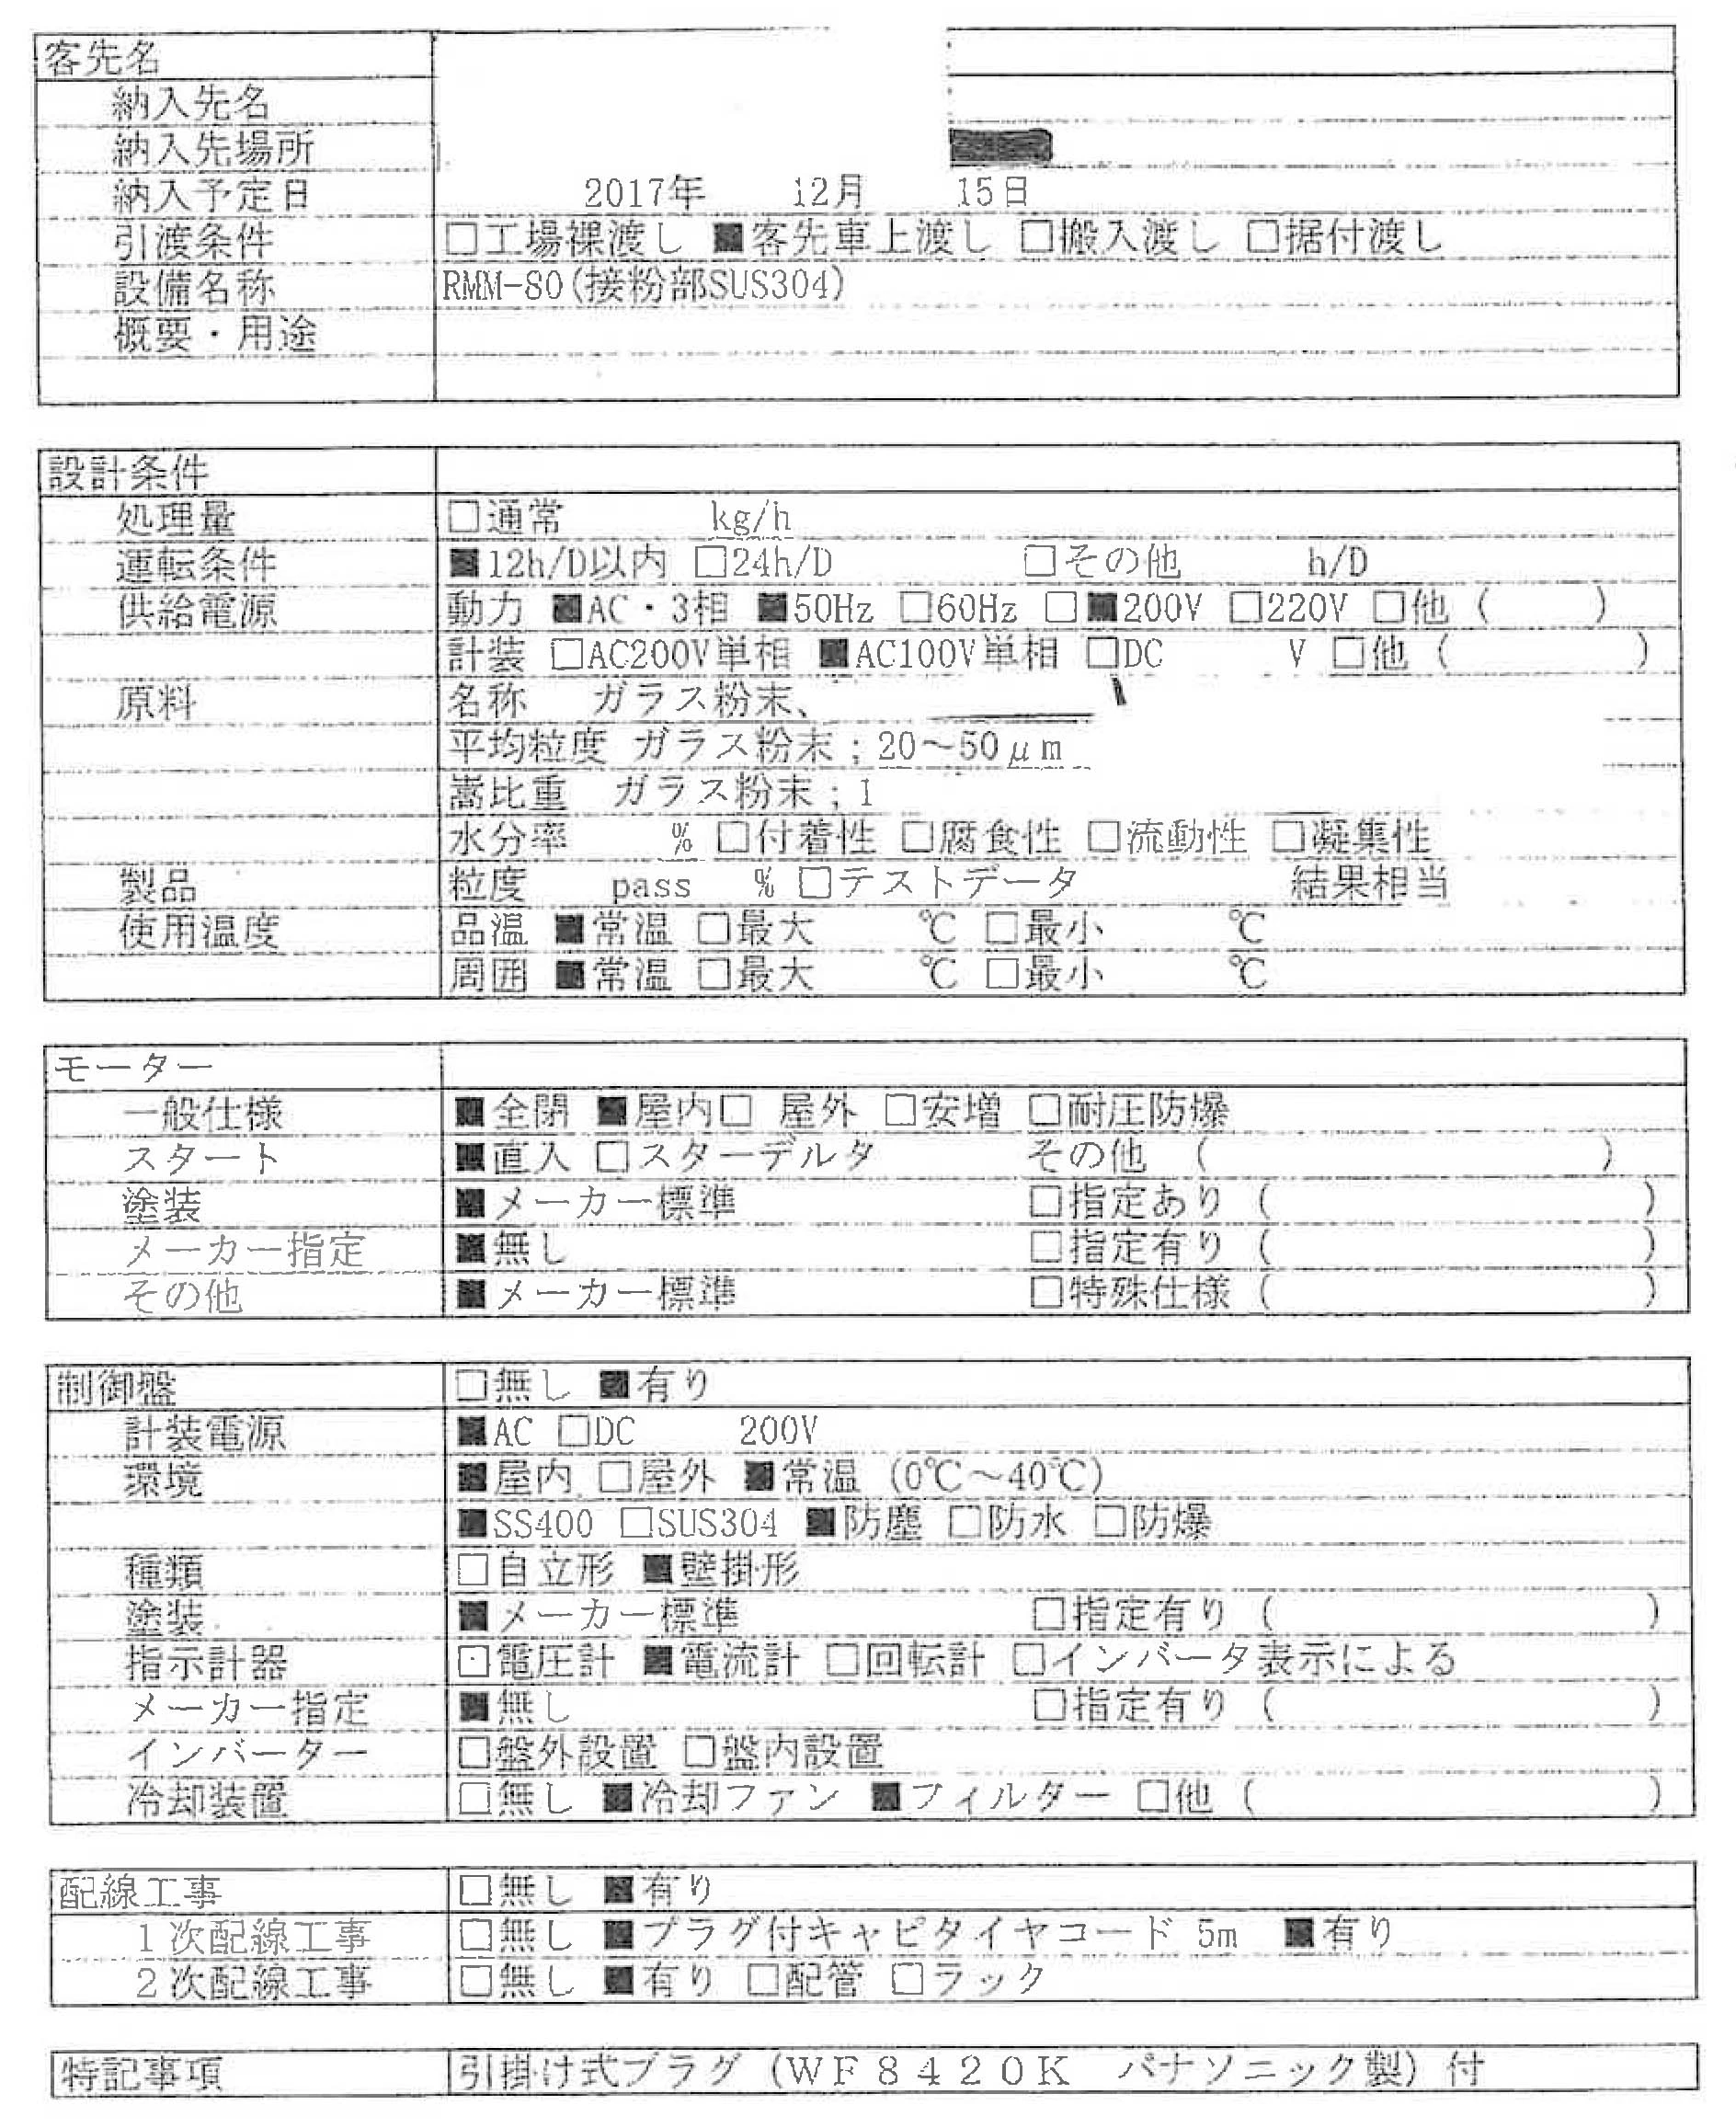 客先名
納入先名
納入先場所
納入予定日 2017年 12月 15日
引渡条件 □工場裸渡し ■客先車上渡し □搬入渡し □据付渡し
設備名称 RMM-80(接粉部SUS304)
概要・用途
設計条件
処理量 □通常 kg/h
運転条件 ■12h/D以内 □24h/D □その他 h/D
供給電源 動力 ■AC・3相 ■50Hz □60Hz □■200V □220V □他 ( )
計装 □AC200V単相 ■AC100V単相 □DC V □他 ( )
原料 名称 ガラス粉末、
平均粒度 ガラス粉末;20～50μm
嵩比重 ガラス粉末;1
水分率 % □付着性 □腐食性 □流動性 □凝集性
製品 粒度 pass % □テストデータ 結果相当
使用温度 品温 ■常温 □最大 ℃ □最小 ℃
周囲 ■常温 □最大 ℃ □最小 ℃
モーター
一般仕様 ■全閉 ■屋内□ 屋外 □安増 □耐圧防爆
スタート ■直入 □スターデルタ その他 ( )
塗装 ■メーカー標準 □指定あり ( )
メーカー指定 ■無し □指定有り ( )
その他 ■メーカー標準 □特殊仕様 ( )
制御盤 □無し ■有り
計装電源 ■AC □DC 200V
環境 ■屋内 □屋外 ■常温 (0℃～40℃)
■SS400 □SUS304 ■防塵 □防水 □防爆
種類 □自立形 ■壁掛形
塗装 ■メーカー標準 □指定有り ( )
指示計器 □電圧計 ■電流計 □回転計 □インバータ表示による
メーカー指定 ■無し □指定有り ( )
インバーター □盤外設置 □盤内設置
冷却装置 □無し ■冷却ファン ■フィルター □他 ( )
配線工事 □無し ■有り
1次配線工事 □無し ■プラグ付キャピタイヤコード 5m ■有り
2次配線工事 □無し ■有り □配管 □ラック
特記事項 引掛け式プラグ (WF8420K パナソニック製) 付